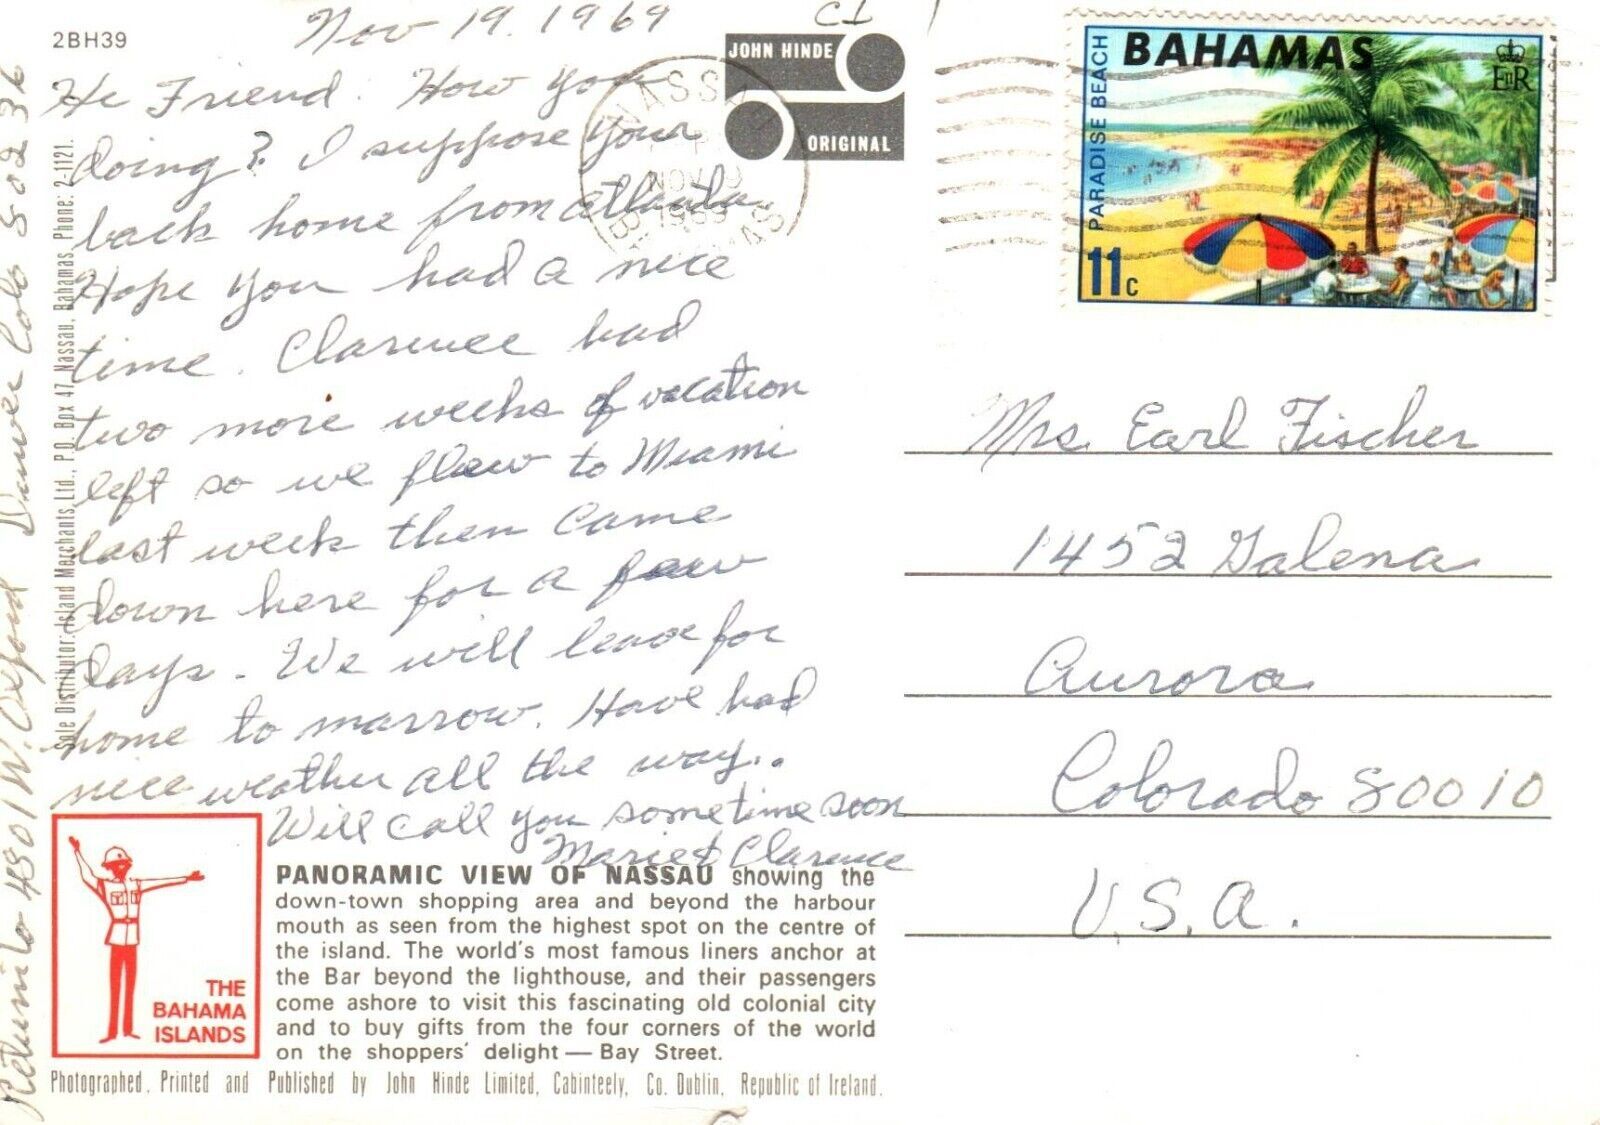 2BH39
Nov 19. 1969
C1
Hi Friend. How you
doing? I suppose your
back home from Atlanta.
Hope you had a nice
time. Clarence had
two more weeks of vacation
left so we flew to Miami
last week then came
down here for a few
days. We will leave for
home to marrow. Have had
nice weather all the way..
Will call you sometime soon
Marie & Clarence
4801 W. Oxford Denver Colo 80236
Sole Distributor: Island Merchants, Ltd., P.O. Box 47, Nassau, Bahamas Phone: 2-1121.
JOHN HINDE
ORIGINAL
NASSAU
NOV
1969
BAHAMAS
BAHAMAS
EIIR
PARADISE BEACH
11c
Mrs. Earl Fischer
1452 Galena
Aurora
Colorado 80010
U.S.A.
THE
BAHAMA
ISLANDS
PANORAMIC VIEW OF NASSAU showing the
down-town shopping area and beyond the harbour
mouth as seen from the highest spot on the centre of
the island. The world's most famous liners anchor at
the Bar beyond the lighthouse, and their passengers
come ashore to visit this fascinating old colonial city
and to buy gifts from the four corners of the world
on the shoppers' delight — Bay Street.
Photographed, Printed and Published by John Hinde Limited, Cabinteely, Co. Dublin, Republic of Ireland.